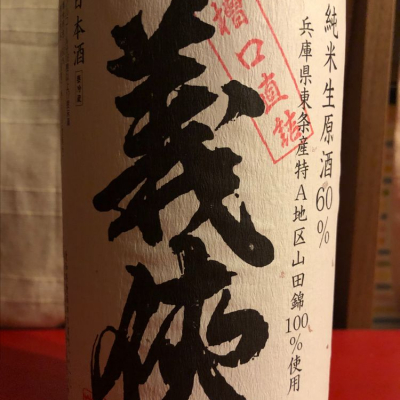 純米生原酒60%
兵庫県東条産特A地区山田錦100%使用
槽口直詰
義侠
日本酒